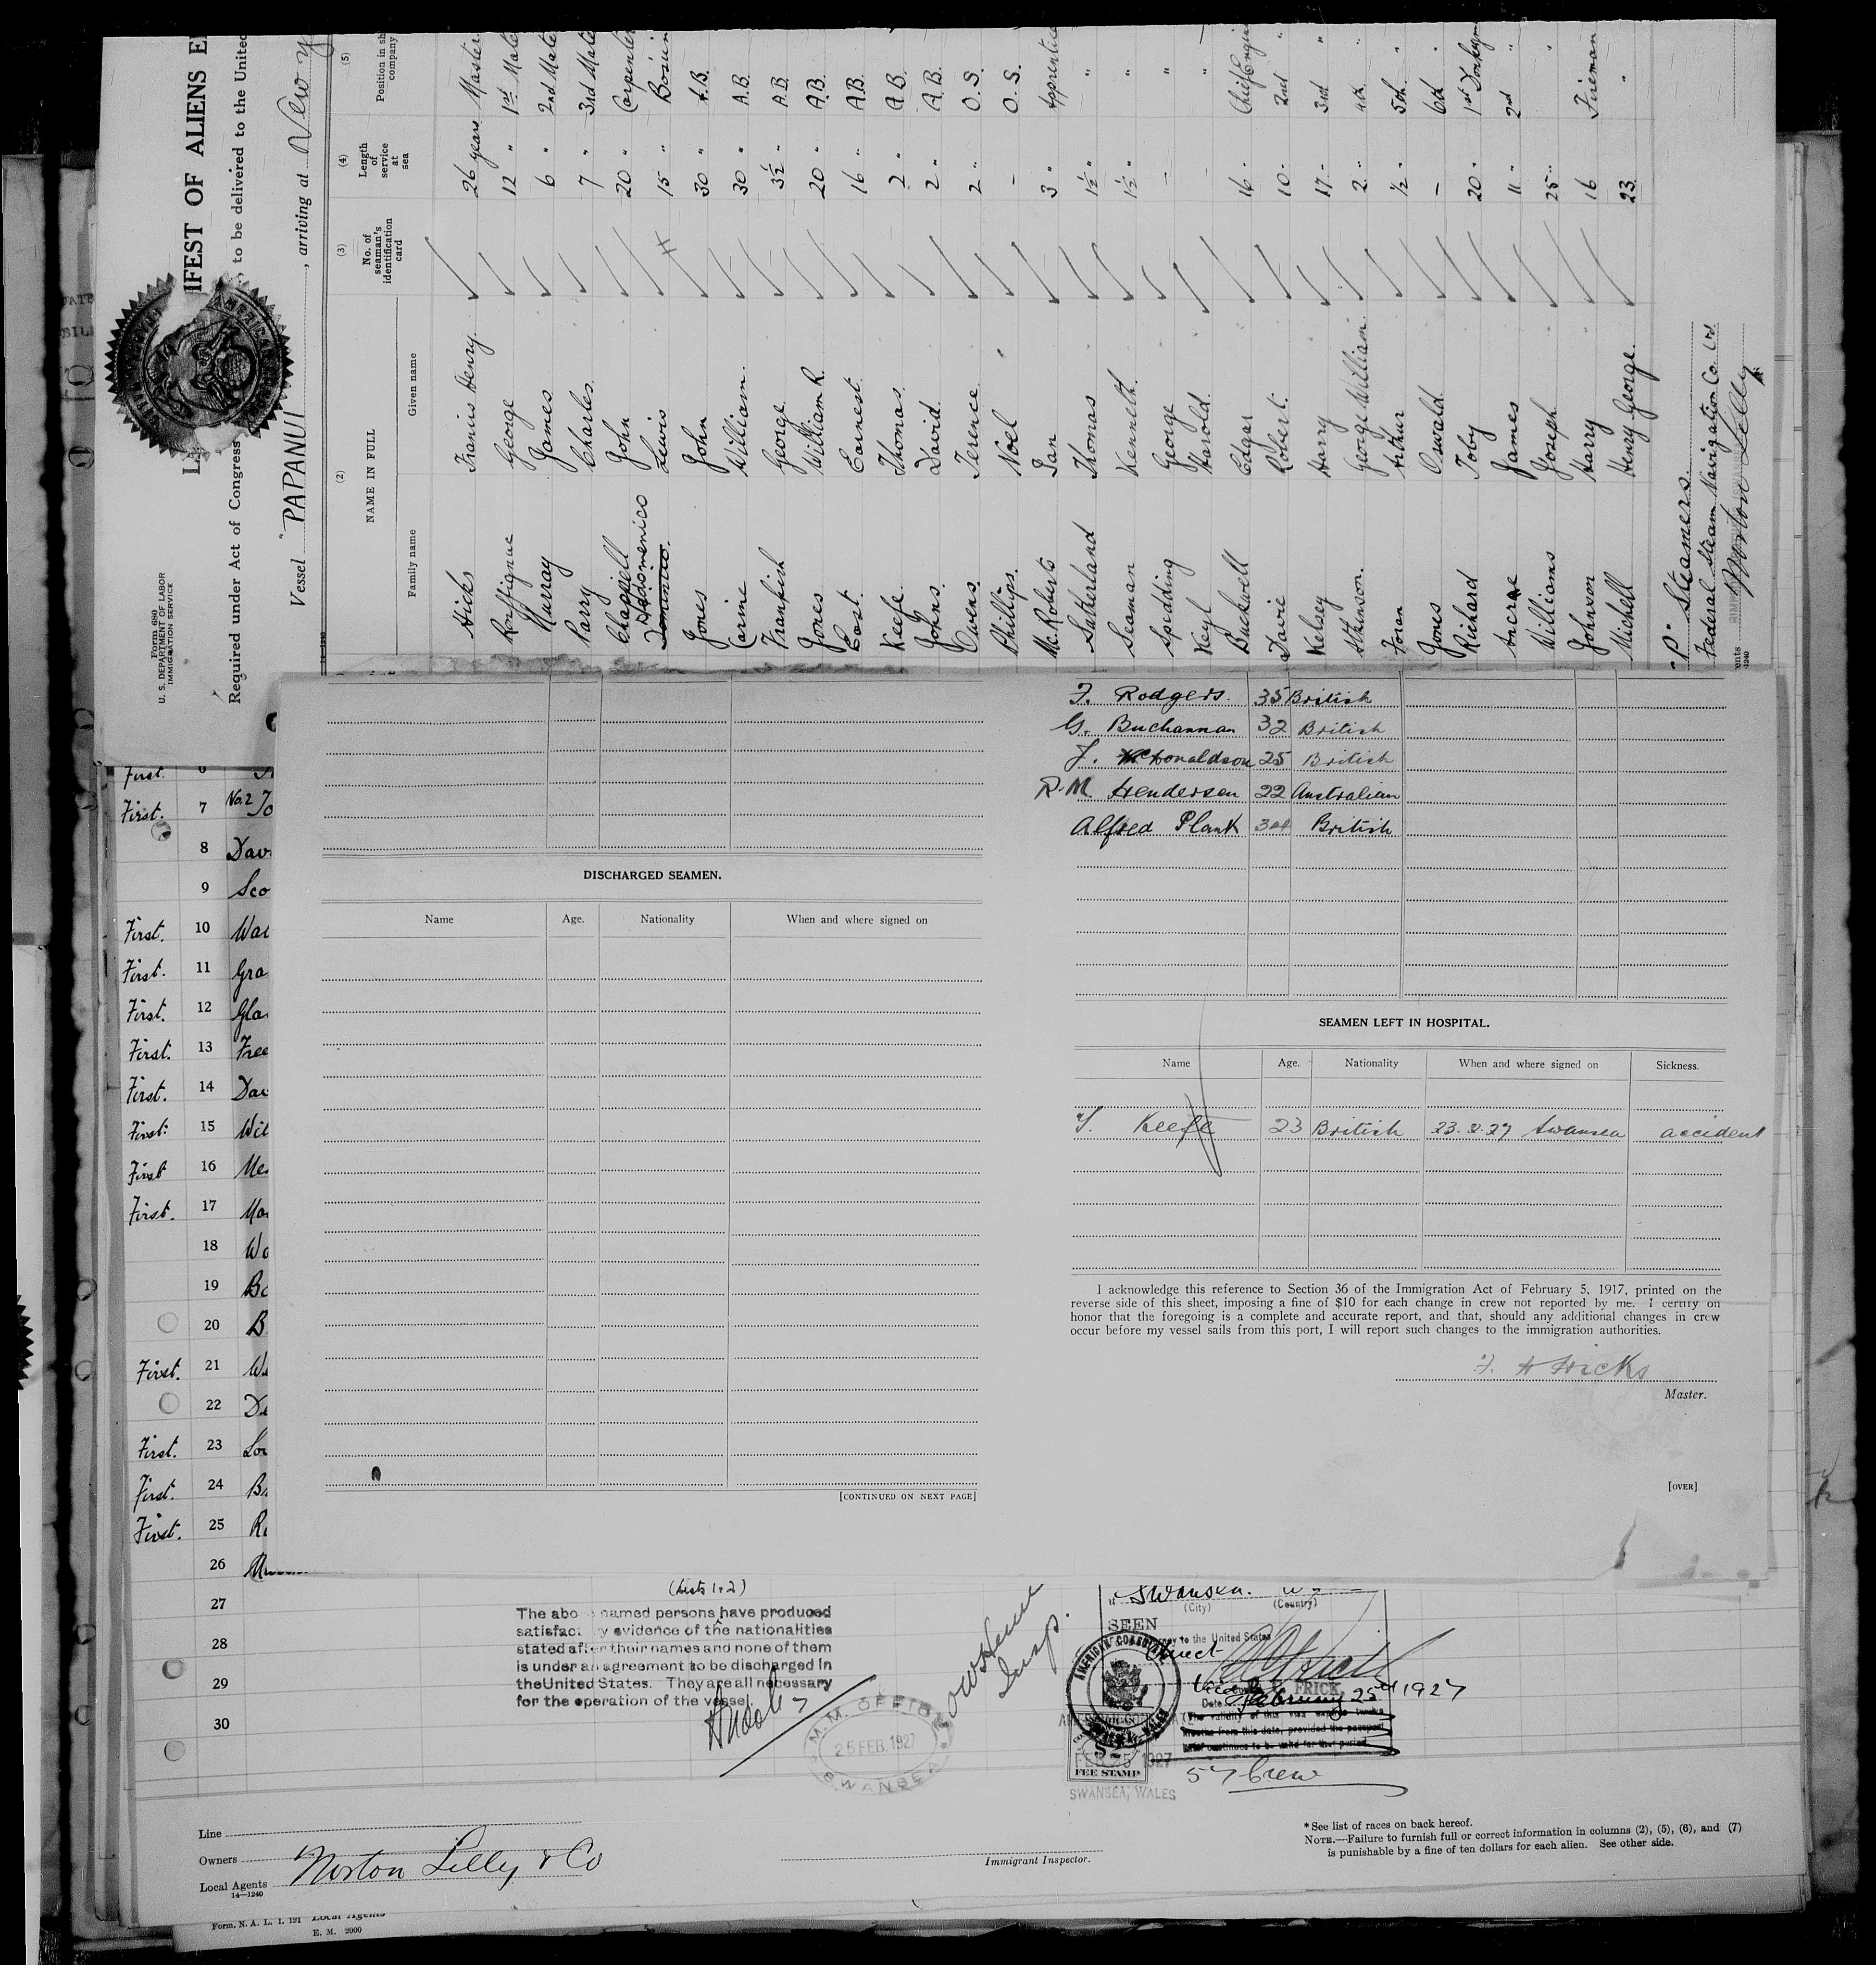 Form 680
U. S. DEPARTMENT OF LABOR
IMMIGRATION SERVICE
IFEST OF ALIENS E
Required under Act of Congress
, to be delivered to the United
Vessel "PAPANUI , arriving at New Y
(2) (3) (4) (5)
NAME IN FULL
Family name Given name
No. of seaman's identification card
Length of service at sea
Position in sh company
Hicks Francis Henry 26 years Master
Rouffignac George 12 " 1st Mate
Murray James 6 " 2nd Mate
Parry Charles 7 " 3rd Mate
Chappell John 20 " Carpenter
Lewis 15 " Bosun
Jones John 30 " A.B.
Carine William 30 " A.B.
George 3½ " A.B.
Jones William R. 20 " A.B.
East Earnest 16 " A.B.
Keefe Thomas 2 " A.B.
Johns David 2 " A.B.
Owens Terence 2 " O.S.
Phillips Noel - O.S.
McRoberts Ian 3 " Apprentice
Sutherland Thomas 1½ " "
Seaman Kenneth 1½ " "
Spedding George - "
Keyl Harold - "
Buckwell Edgar 16 " Chief Engin
Davie Robert 10 " 2nd "
Kelsey Harry 17 " 3rd "
Atkinson George William 2 " 4th "
Foran Arthur ½ " 5th "
Jones Oswald - 6th "
Richard Toby 20 " 1st Donkeym
Ancrae James 11 " 2nd "
Williams Joseph 25 " "
Johnson Harry 16 Fireman
Michell Henry George 23 "
"P" Steamers.
Federal Steam Navigation Co Ltd
Norton Lilly
First. 6
First. 7 No. 2 To
8 Dav
9 Sco
First. 10 Wal
First. 11 Gra
First. 12 Gla
First. 13 Free
First. 14 Dav
First. 15 Wil
First 16 Me
First. 17 Ma
18 Wo
19 Bo
20 B
First. 21 W
22 De
First. 23 Lo
First. 24 B
First. 25 R
26
27
28
29
30
DISCHARGED SEAMEN.
Name Age. Nationality When and where signed on
[CONTINUED ON NEXT PAGE]
F. Rodgers. 35 British
G. Buchannan 32 British
J. McDonaldson 25 British
R. M. Henderson 22 Australian
Alfred Plank 34 British
SEAMEN LEFT IN HOSPITAL.
Name Age. Nationality When and where signed on Sickness.
T. Keefe 23 British 23.2.27 Swansea accident
I acknowledge this reference to Section 36 of the Immigration Act of February 5, 1917, printed on the
reverse side of this sheet, imposing a fine of $10 for each change in crew not reported by me. I certify on
honor that the foregoing is a complete and accurate report, and that, should any additional changes in crew
occur before my vessel sails from this port, I will report such changes to the immigration authorities.
F. H Hicks
Master.
[OVER]
(Lists 1+2)
The abo named persons have produced
satisfac y evidence of the nationalities
stated after their names and none of them
is under an agreement to be discharged in
the United States. They are all necessary
for the operation of the vessel.
M.M. OFFICE
25 FEB. 1927
SWANSEA
Insp.
Swansea.
(City) (Country)
SEEN
ney to the United States
Direct
AMERICAN CONSULATE
FRICK,
Date February 25th 1927
The validity of this visa expires twelve
months from this date, provided the passport
continues to be valid for that period.
FEB 25 1927
FEE STAMP
SWANSEA, WALES
57 Crew
Line
Owners
Local Agents Norton Lilly & Co
14—1240
Immigrant Inspector.
* See list of races on back hereof.
NOTE.—Failure to furnish full or correct information in columns (2), (5), (6), and (7)
is punishable by a fine of ten dollars for each alien. See other side.
Form. N. A. L. 1. 191 Local Agents
E. M. 2000